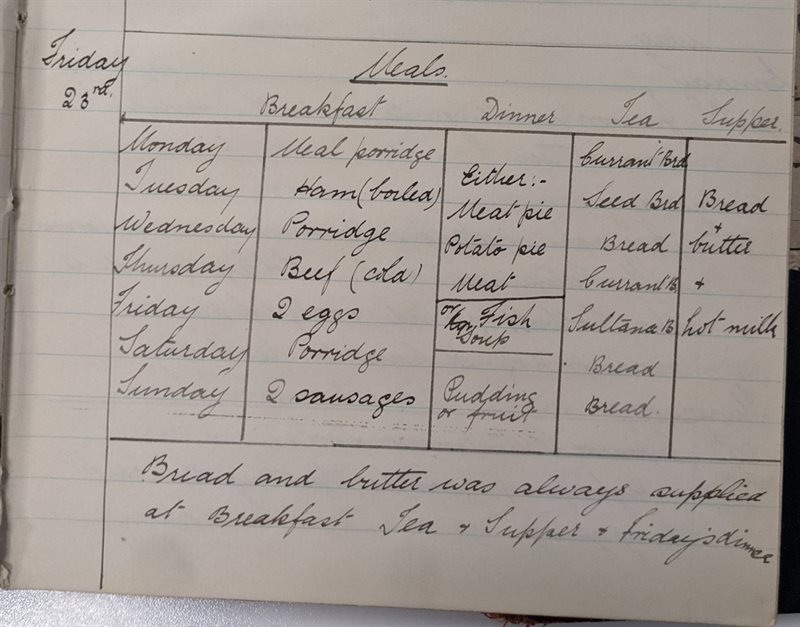 Friday
23rd.
Meals.
Breakfast Dinner Tea Supper.
Monday Meal porridge Currant Brd
Tuesday Ham (boiled) Either:- Seed Brd Bread
Wednesday Porridge Meat pie Bread + butter
Thursday Beef (cold) Potato pie Currant B. +
Friday 2 eggs Meat Sultana B hot milk
Saturday Porridge or Fish Soup Bread
Sunday 2 sausages Pudding or fruit Bread.
Bread and butter was always supplied
at Breakfast Tea + Supper + Friday's dinner